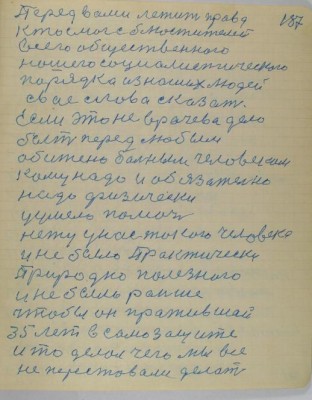 187
Перед вами летит правд
кто смог с блюстителей
всего общественного
нашего социалистического
порядка из наших людей
свае слова сказат.
Если это не врачева дело
быть перед любым
обитено балным человеком
кому надо и обязателно
надо физически
умело помоч
нету у нас токого человека
и не было практически
природно полезного
и не было ранше
чтобы он пражившай
35 лет в самозащите
и то делол чего мы все
не перестовали делат